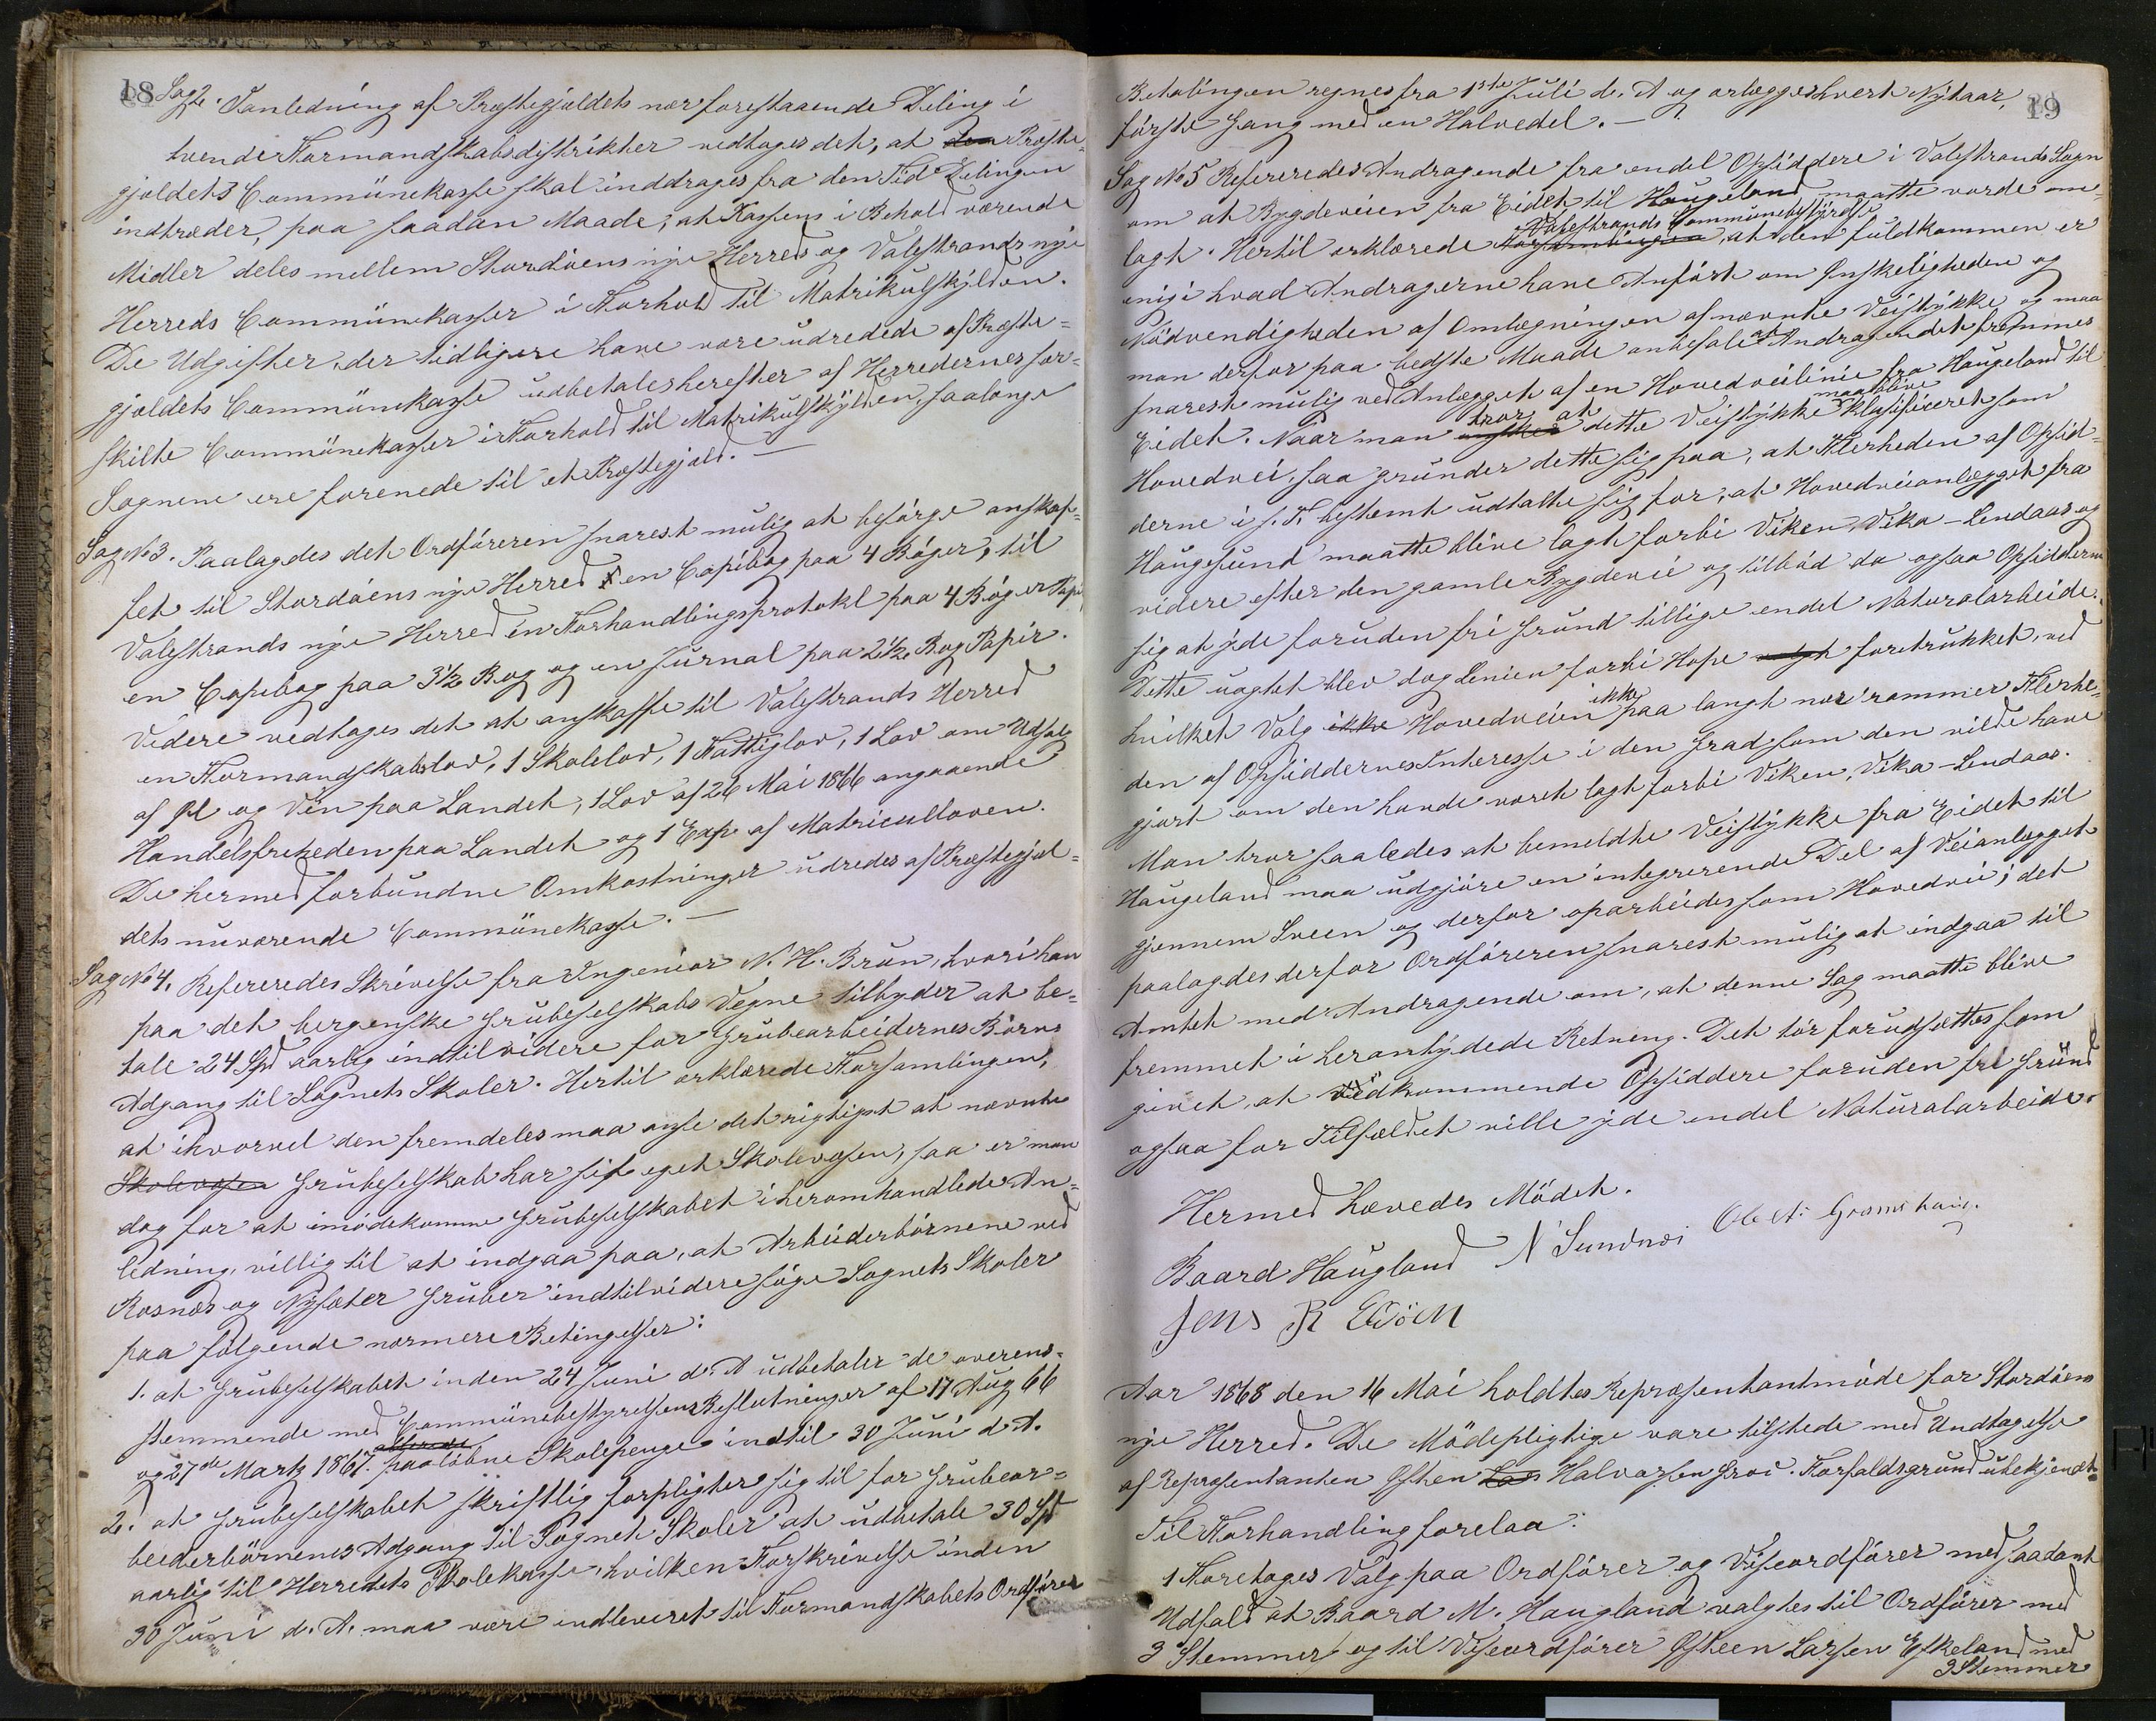 18
Sag 2. I anledning af Præstegjældets nær forestaaende Deling i
tvende Formandskabsdistrikter vedtoges det, at den Præste-
gjeldets Communekasse skal inddrages fra den Tid Delingen
indtræder, paa saadan Maade, at Kassens i Behold værende
Midler deles mellem Stordøens nye Herred og Valestrands nye
Herreds Communekasser i Forhold til Matrikulskylden.
De Udgifter der tidligere have være udredede af Præste-
gjeldets Communekasse udbetales herefter af Herredernes for-
skilte Communekasser i Forhold til Matrikulskylden, saalænge
Sognene ere forenede til et Præstegjeld. —
Sag No 3. Paalagdes det Ordføreren snarest mulig at besørge anskaf-
fet til Stordøens nye Herred en Copibog paa 4 Bøger, til
Valestrands nye Herred en Forhandlingsprotokl paa 4 Bøger Papir
en Copibog paa 3 1/2 Bog og en Jurnal paa 2 1/2 Bog Papir.
Videre vedtoges det at anskaffe til Valestrands Herred
en Formandskabslov, 1 Skolelov, 1 Fattiglov, 1 Lov om Udsalg
af Øl og Vin paa Landet, 1 Lov af 26 Mai 1866 angaaende
Handelsfriheden paa Landet og 1 Exp. af Matriculloven.
De hermed forbundne Omkostninger udredes af Præstegjel-
dets nuværende Communekasse. —
Sag No 4. Refereredes Skrivelse fra Ingeniør N. H. Brun, hvori han
paa det bergenske Grubeselskabs Vegne tilbyder at be-
tale 24 Spd aarlig indtilvidere for Grubearbeidernes Børns
Adgang til Sognets Skoler. Hertil erklærede Forsamlingen,
at ihvorvel den fremdeles maa anse det rigtigst at nævnte
Skolevæsen Grubeselskab har sit eget Skolevæsen, saa er man
dog for at imødekomme Grubeselskabet i heromhandlede An-
ledning, villig til at indgaa paa, at Arbeiderbørnene ved
Rosnæs og Nysæter Gruber indtilvidere søge Sognets Skoler
paa følgende nærmere Betingelser:
1. at Grubeselskabet inden 24 Juni d. A udbetaler de overens-
stemmende med Communebestyrelsens Beslutninger af 17 Aug 66
og 27de Marts 1867. paaløbne Skolepenge indtil 30 Juni d. A.
2. at Grubeselskabet skriftlig forpligter sig til for Grubear-
beiderbørnenes Adgang til Sognets Skoler at udbetale 30 Spd
aarlig til Herredets Skolekasse, hvilken Forskrivelse inden
30 Juni d. A. maa være indleveret til Formandskabets Ordfører
19
Betalingen regnes fra 1ste Juli d. A og erlægges hvert Nytaar,
første Gang med en Halvedel. —
Sag No 5 Refereredes Andragende fra endel Opsiddere i Valestrands Sogn
om at Bygdeveien fra Eidet til Haugeland maatte vorde om-
Valestrands Communebestyrelse
lagt. Hertil erklærede Forsamlingen, at den fuldkommen er
enig i hvad Andragerne have Anført om Ønskeligheden og
Nødvendigheden af Omlægningen af nævnte Veistykke og maa
man derfor paa bedste Maade anbefale at Andragendet fremmes
snarest mulig ved Anlægget af en Hovedveilinie fra Haugeland til
tror at maa blive
Eidet. Naar man ønsker dette Veistykke klasificeret som
Hovedvei, saa grunder dette sig paa, at Flerheden af Opsid-
derne i s. T. bestemt udtalte sig for, at Hovedveianlægget fra
Haugesund maatte blive lagt forbi Viken, Vika - Lendaas og
videre efter den gamle Bygdevei og tilbød da ogsaa Opsidderne
sig at yde foruden fri Grund tillige endel Naturalarbeide.
Dette uagtet blev dog Linien forbi Hope valgt foretrukket, ved
hvilket Valg ikke Hovedveien ikke paa langt nær rammer Flerhe-
den af Opsiddernes Interesse i den Grad som den vilde have
gjort om den havde været lagt forbi Viken, Vika - Lendaas.
Man tror saaledes at bemeldte Veistykke fra Eidet til
Haugeland maa udgjøre en integrerende Del af Veianlægget
gjennem Sveen og derfor oparbeides som Hovedvei; det
paalagdes derfor Ordføreren snarest mulig at indgaa til
Amtet med Andragende om, at denne Sag maatte blive
fremmet i herantydede Retning. Det tør forudsættes som
givet, at vedkommende Opsiddere foruden fri Grund
ogsaa for Tilfældet ville yde endel Naturalarbeide.
Hermed hævedes Mødet.
Baard Haugland N Sundnæs Ole A.
Jens R
Aar 1868 den 16 Mai holdtes Repræsentantmøde for Stordøens
nye Herred. De Mødepligtige vare tilstede med Undtagelse
af Repræsentanten Østen Las Halvorsen Grov. Forfaldsgrund ubekjendt.
Til Forhandling forelaa:
1 Foretoges Valg paa Ordfører og Viseordfører med saadant
Udfald at Baard M. Haugland valgtes til Ordfører med
3 Stemmer og til Viseordfører Østeen Larsen Eskeland med
3 Stemmer